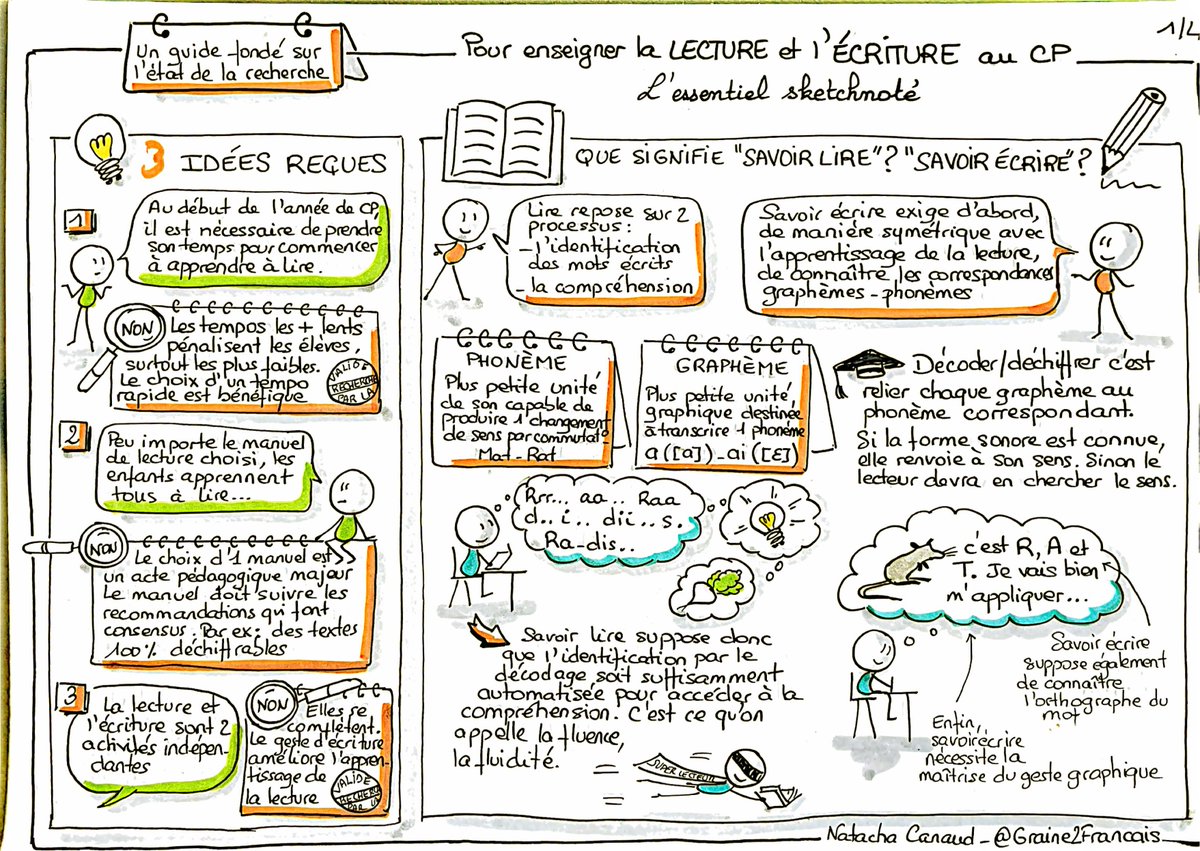 1/4
Un guide fondé sur
l'état de la recherche
Pour enseigner la LECTURE et l'ÉCRITURE au CP
L'essentiel sketchnoté
3 IDÉES REÇUES
1
Au début de l'année de CP,
il est nécessaire de prendre
son temps pour commencer
à apprendre à lire.
NON
Les tempos les + lents
pénalisent les élèves,
surtout les plus faibles.
Le choix d'un tempo
rapide est bénéfique
VALIDÉ
PAR LA
RECHERCHE
2
Peu importe le manuel
de lecture choisi, les
enfants apprennent
tous à lire...
NON
Le choix d'1 manuel est
un acte pédagogique majeur
Le manuel doit suivre les
recommandations qui font
consensus. Par ex: des textes
100% déchiffrables
3
La lecture et
l'écriture sont 2
activités indépen-
dantes
NON
Elles se
complètent.
Le geste d'écriture
améliore l'appren-
tissage de
la lecture
VALIDÉ
PAR LA
RECHERCHE
QUE SIGNIFIE "SAVOIR LIRE"? "SAVOIR ÉCRIRE"?
Lire repose sur 2
processus :
- l'identification
des mots écrits
- la compréhension
Savoir écrire exige d'abord,
de manière symétrique avec
l'apprentissage de la lecture,
de connaître les correspondances
graphèmes - phonèmes
PHONÈME
Plus petite unité
de son capable de
produire 1 changement
de sens par commutat°
Mat - Rat
GRAPHÈME
Plus petite unité
graphique destinée
à transcrire 1 phonème
a ([a]) - ai ([ɛ])
Décoder/déchiffrer c'est
relier chaque graphème au
phonème correspondant.
Si la forme sonore est connue,
elle renvoie à son sens. Sinon le
lecteur devra en chercher le sens.
Rrr... aa.. Raa
d.. i.. dii.. s.
Ra-dis..
Savoir lire suppose donc
que l'identification par le
décodage soit suffisamment
automatisée pour accéder à la
compréhension. C'est ce qu'on
appelle la fluence,
la fluidité.
SUPER LECTEUR
c'est R, A et
T. Je vais bien
m'appliquer...
Savoir écrire
suppose également
de connaître
l'orthographe du
mot
Enfin,
savoir écrire
nécessite la
maîtrise du geste graphique
Natacha Canaud - @Graine2Francais